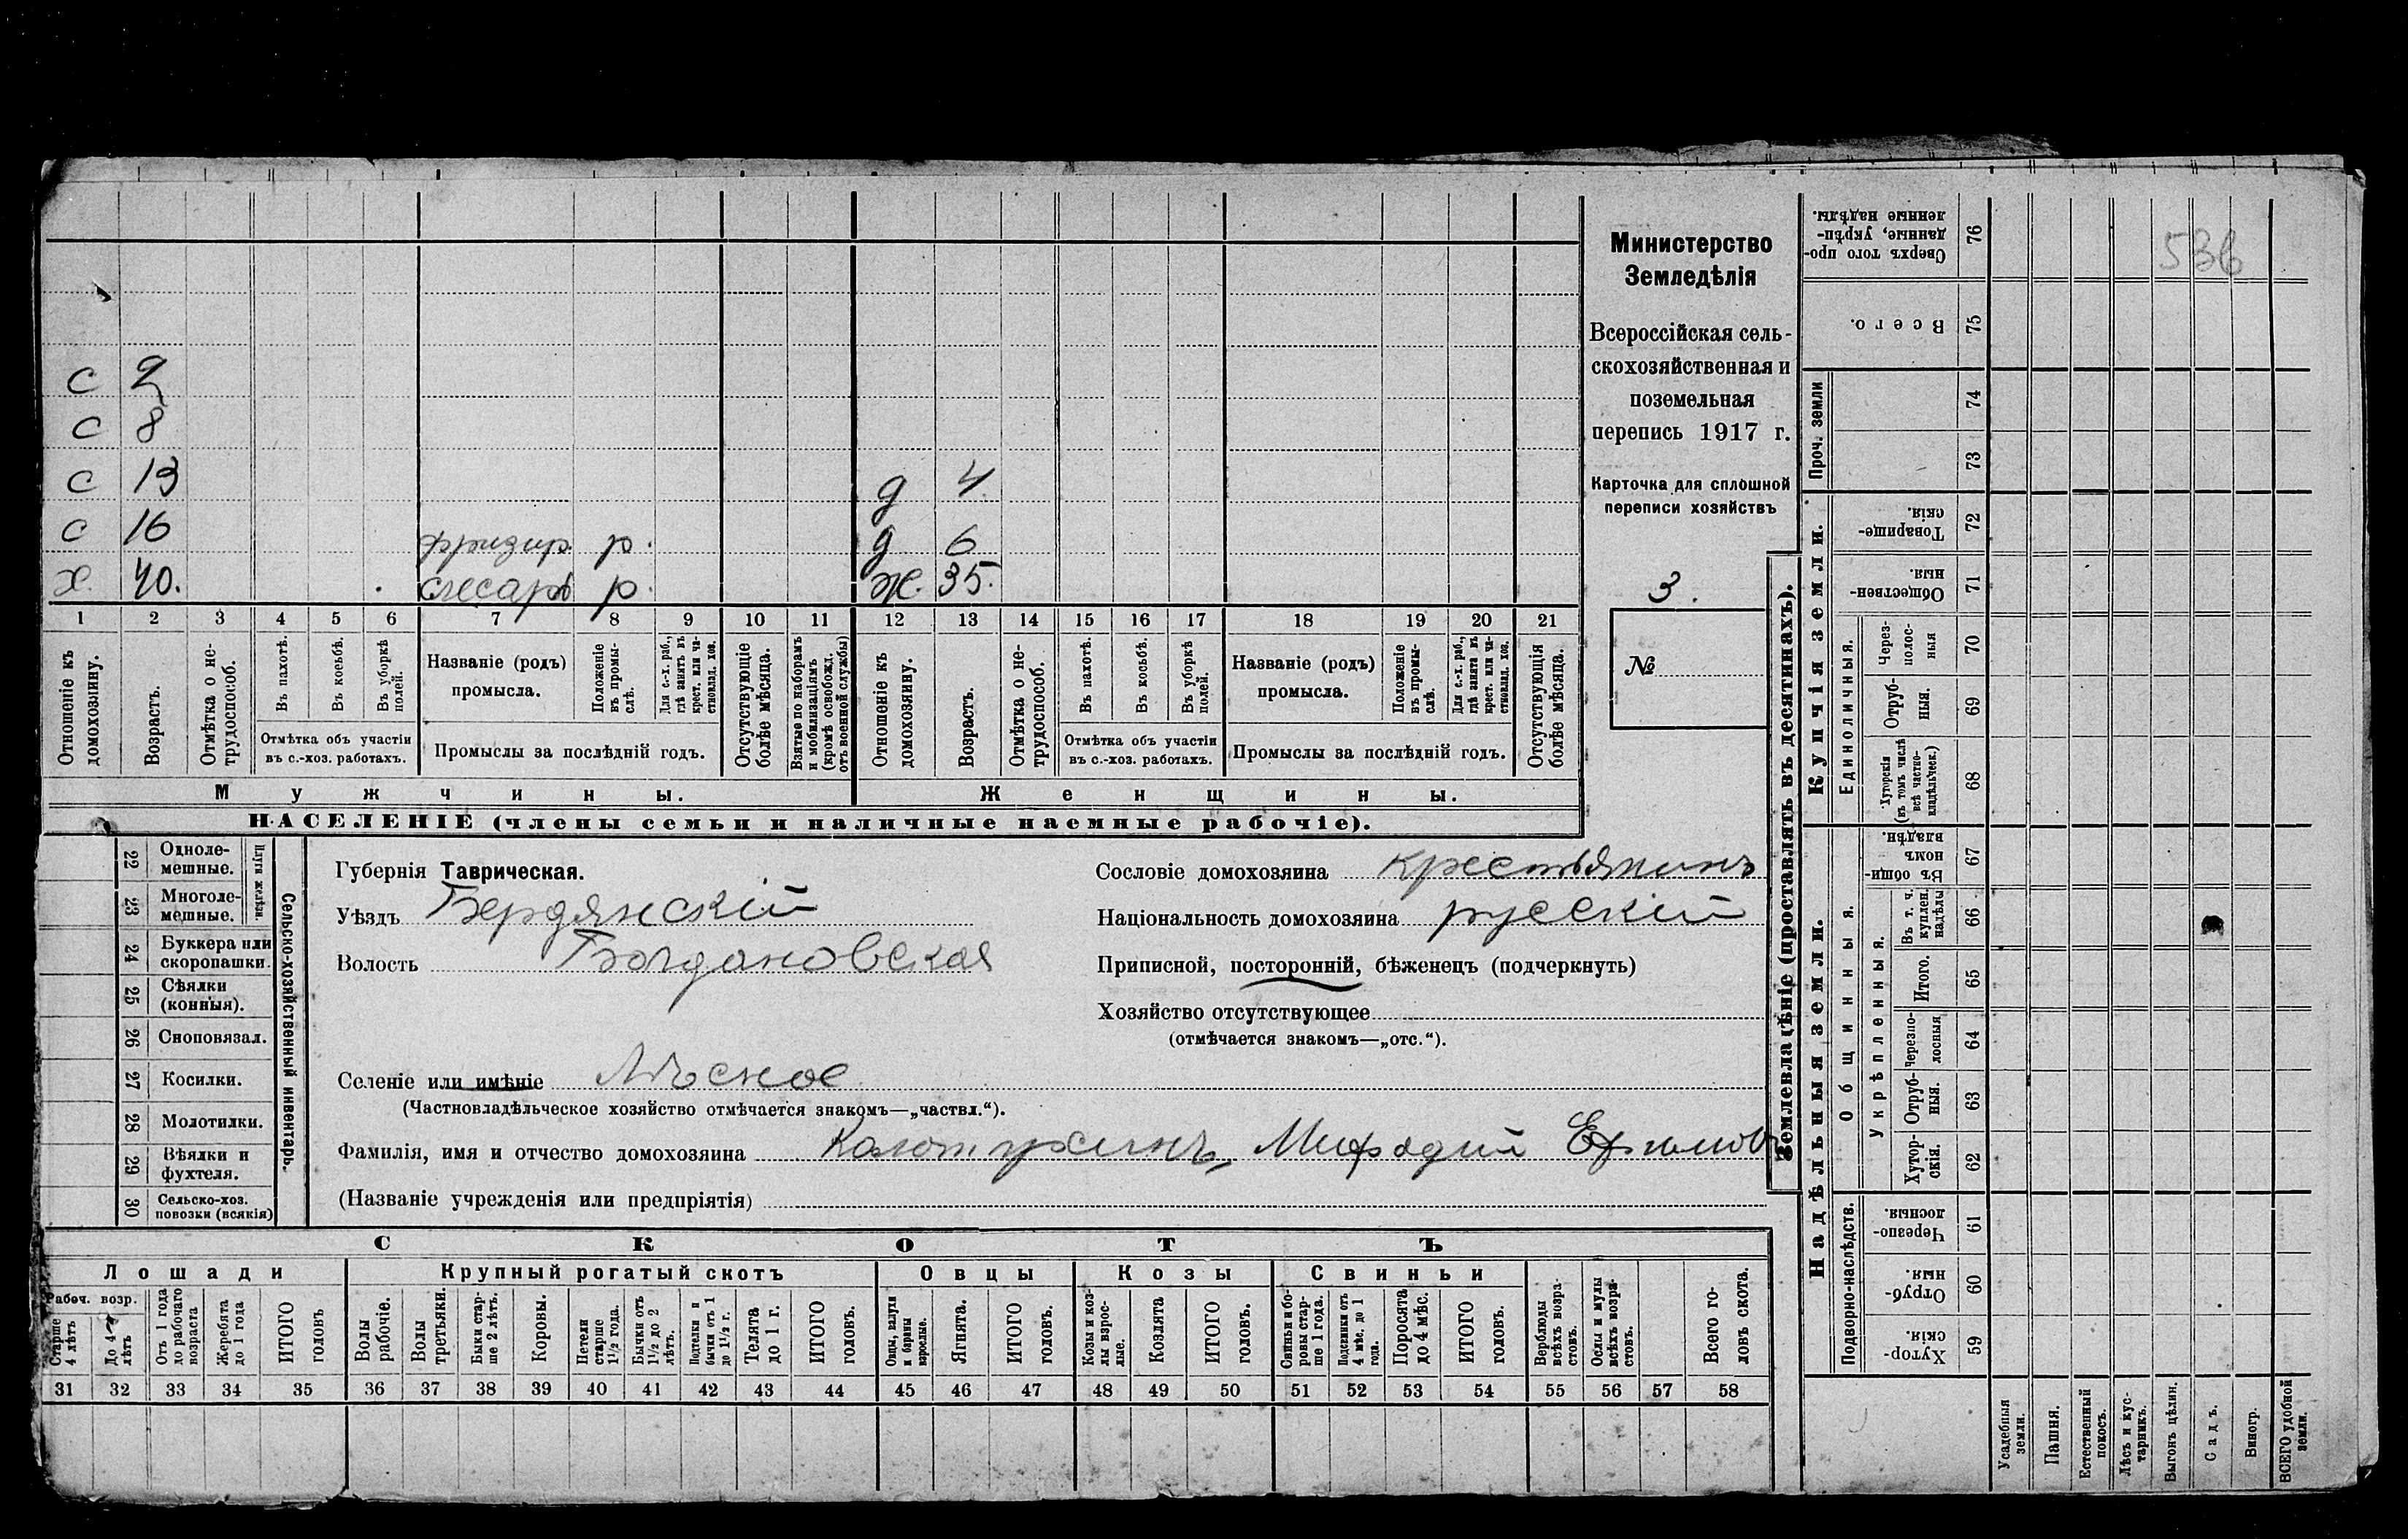 536
Министерство
Земледѣлія
Всероссійская сель-
скохозяйственная и
поземельная
перепись 1917 г.
Карточка для сплошной
переписи хозяйствъ
3.
№
с 2
с 8
с 13 д 4
с 16 р. д 6
х. 40. слесарь р. ж. 35.
1 2 3 4 5 6 7 8 9 10 11 12 13 14 15 16 17 18 19 20 21
Отношеніе къ домохозяину.
Возрастъ.
Отмѣтка о не-трудоспособ.
Въ пахотѣ.
Въ косьбѣ.
Въ уборкѣ полей.
Отмѣтка объ участіи
въ с.-хоз. работахъ.
Названіе (родъ)
промысла.
Положеніе въ промы-слѣ.
Для с.-х. раб., гдѣ занятъ въ крест. или ча-стновлад. хоз.
Промыслы за послѣдній годъ.
Отсутствующіе болѣе мѣсяца.
Взятые по наборамъ и мобилизаціямъ (кромѣ освобожд. отъ военной службы)
Отношеніе къ домохозяину.
Возрастъ.
Отмѣтка о не-трудоспособ.
Въ пахотѣ.
Въ косьбѣ.
Въ уборкѣ полей.
Отмѣтка объ участіи
въ с.-хоз. работахъ.
Названіе (родъ)
промысла.
Положеніе въ промы-слѣ.
Для с.-х. раб., гдѣ занята въ крест. или ча-стновлад. хоз.
Промыслы за послѣдній годъ.
Отсутствующія болѣе мѣсяца.
Мужчины. Женщины.
НАСЕЛЕНІЕ (члены семьи и наличные наемные рабочіе).
Сельско-хозяйственный инвентарь.
Плуги желѣзн.
22 Одноле-мешные.
23 Многоле-мешные.
24 Буккера или скоропашки.
25 Сѣялки (конныя).
26 Сноповязал.
27 Косилки.
28 Молотилки.
29 Вѣялки и фухтеля.
30 Сельско-хоз. повозки (всякія)
Губернія Таврическая.
Уѣздъ Бердянскій
Волость Богдановская
Селеніе или имѣніе Лѣсное
(Частновладѣльческое хозяйство отмѣчается знакомъ—„частвл.“).
Фамилія, имя и отчество домохозяина Колотухинъ, Мифодий Ефимов
(Названіе учрежденія или предпріятія)
Сословіе домохозяина крестьянинъ
Національность домохозяина русскій
Приписной, посторонній, бѣженецъ (подчеркнуть)
Хозяйство отсутствующее
(отмѣчается знакомъ—„отс.“).
СКОТЪ
Лошади Крупный рогатый скотъ Овцы Козы Свиньи
Рабоч. возр.
Старше 4 лѣтъ
До 4 лѣтъ
Отъ 1 года до рабочаго возраста
Жеребята до 1 года
ИТОГО головъ
Волы рабочіе.
Волы третьяки.
Быки стар-ше 2 лѣтъ.
Коровы.
Нетели старше 1½ года.
Бычки отъ 1½ до 2 лѣтъ.
Подтелки и бычки отъ 1 до 1½ г.
Телята до 1 г.
ИТОГО головъ.
Овцы, валухи и бараны взрослые.
Ягнята.
ИТОГО головъ.
Козы и коз-лы взрос-лые.
Козлята
ИТОГО головъ.
Свиньи и бо-ровы стар-ше 1 года.
Подсвинки отъ 4 мѣс. до 1 года.
Поросята до 4 мѣс.
ИТОГО головъ.
Верблюды всѣхъ возра-стовъ.
Ослы и мулы всѣхъ возра-стовъ.
Всего го-ловъ скота.
31 32 33 34 35 36 37 38 39 40 41 42 43 44 45 46 47 48 49 50 51 52 53 54 55 56 57 58
Землевладѣніе (проставлять въ десятинахъ).
Купчія земли.
Надѣльныя земли.
Сверхъ того про-данные, укрѣп-ленные надѣлы. 76
Всего. 75
Проч. земли 74
73
Товарище-скія. 72
Обществен-ныя. 71
Единоличныя.
Через-полос-ныя 70
Отруб-ныя. 69
Хуторскія (въ томъ числѣ всѣ частно-владѣльческ.) 68
Общинныя.
Въ общи-номъ владѣн. 67
Укрѣпленныя.
Въ т. ч. куплен. надѣлы 66
Итого. 65
Черезпо-лосныя 64
Отруб-ныя. 63
Хутор-скія. 62
Подворно-наслѣдств.
Черезпо-лосныя 61
Отруб-ныя. 60
Хутор-скія. 59
Усадебныя земли.
Пашня.
Естественный покосъ.
Лѣсъ и кус-тарникъ.
Выгонъ цѣлин.
Садъ.
Виногр.
ВСЕГО удобной земли.